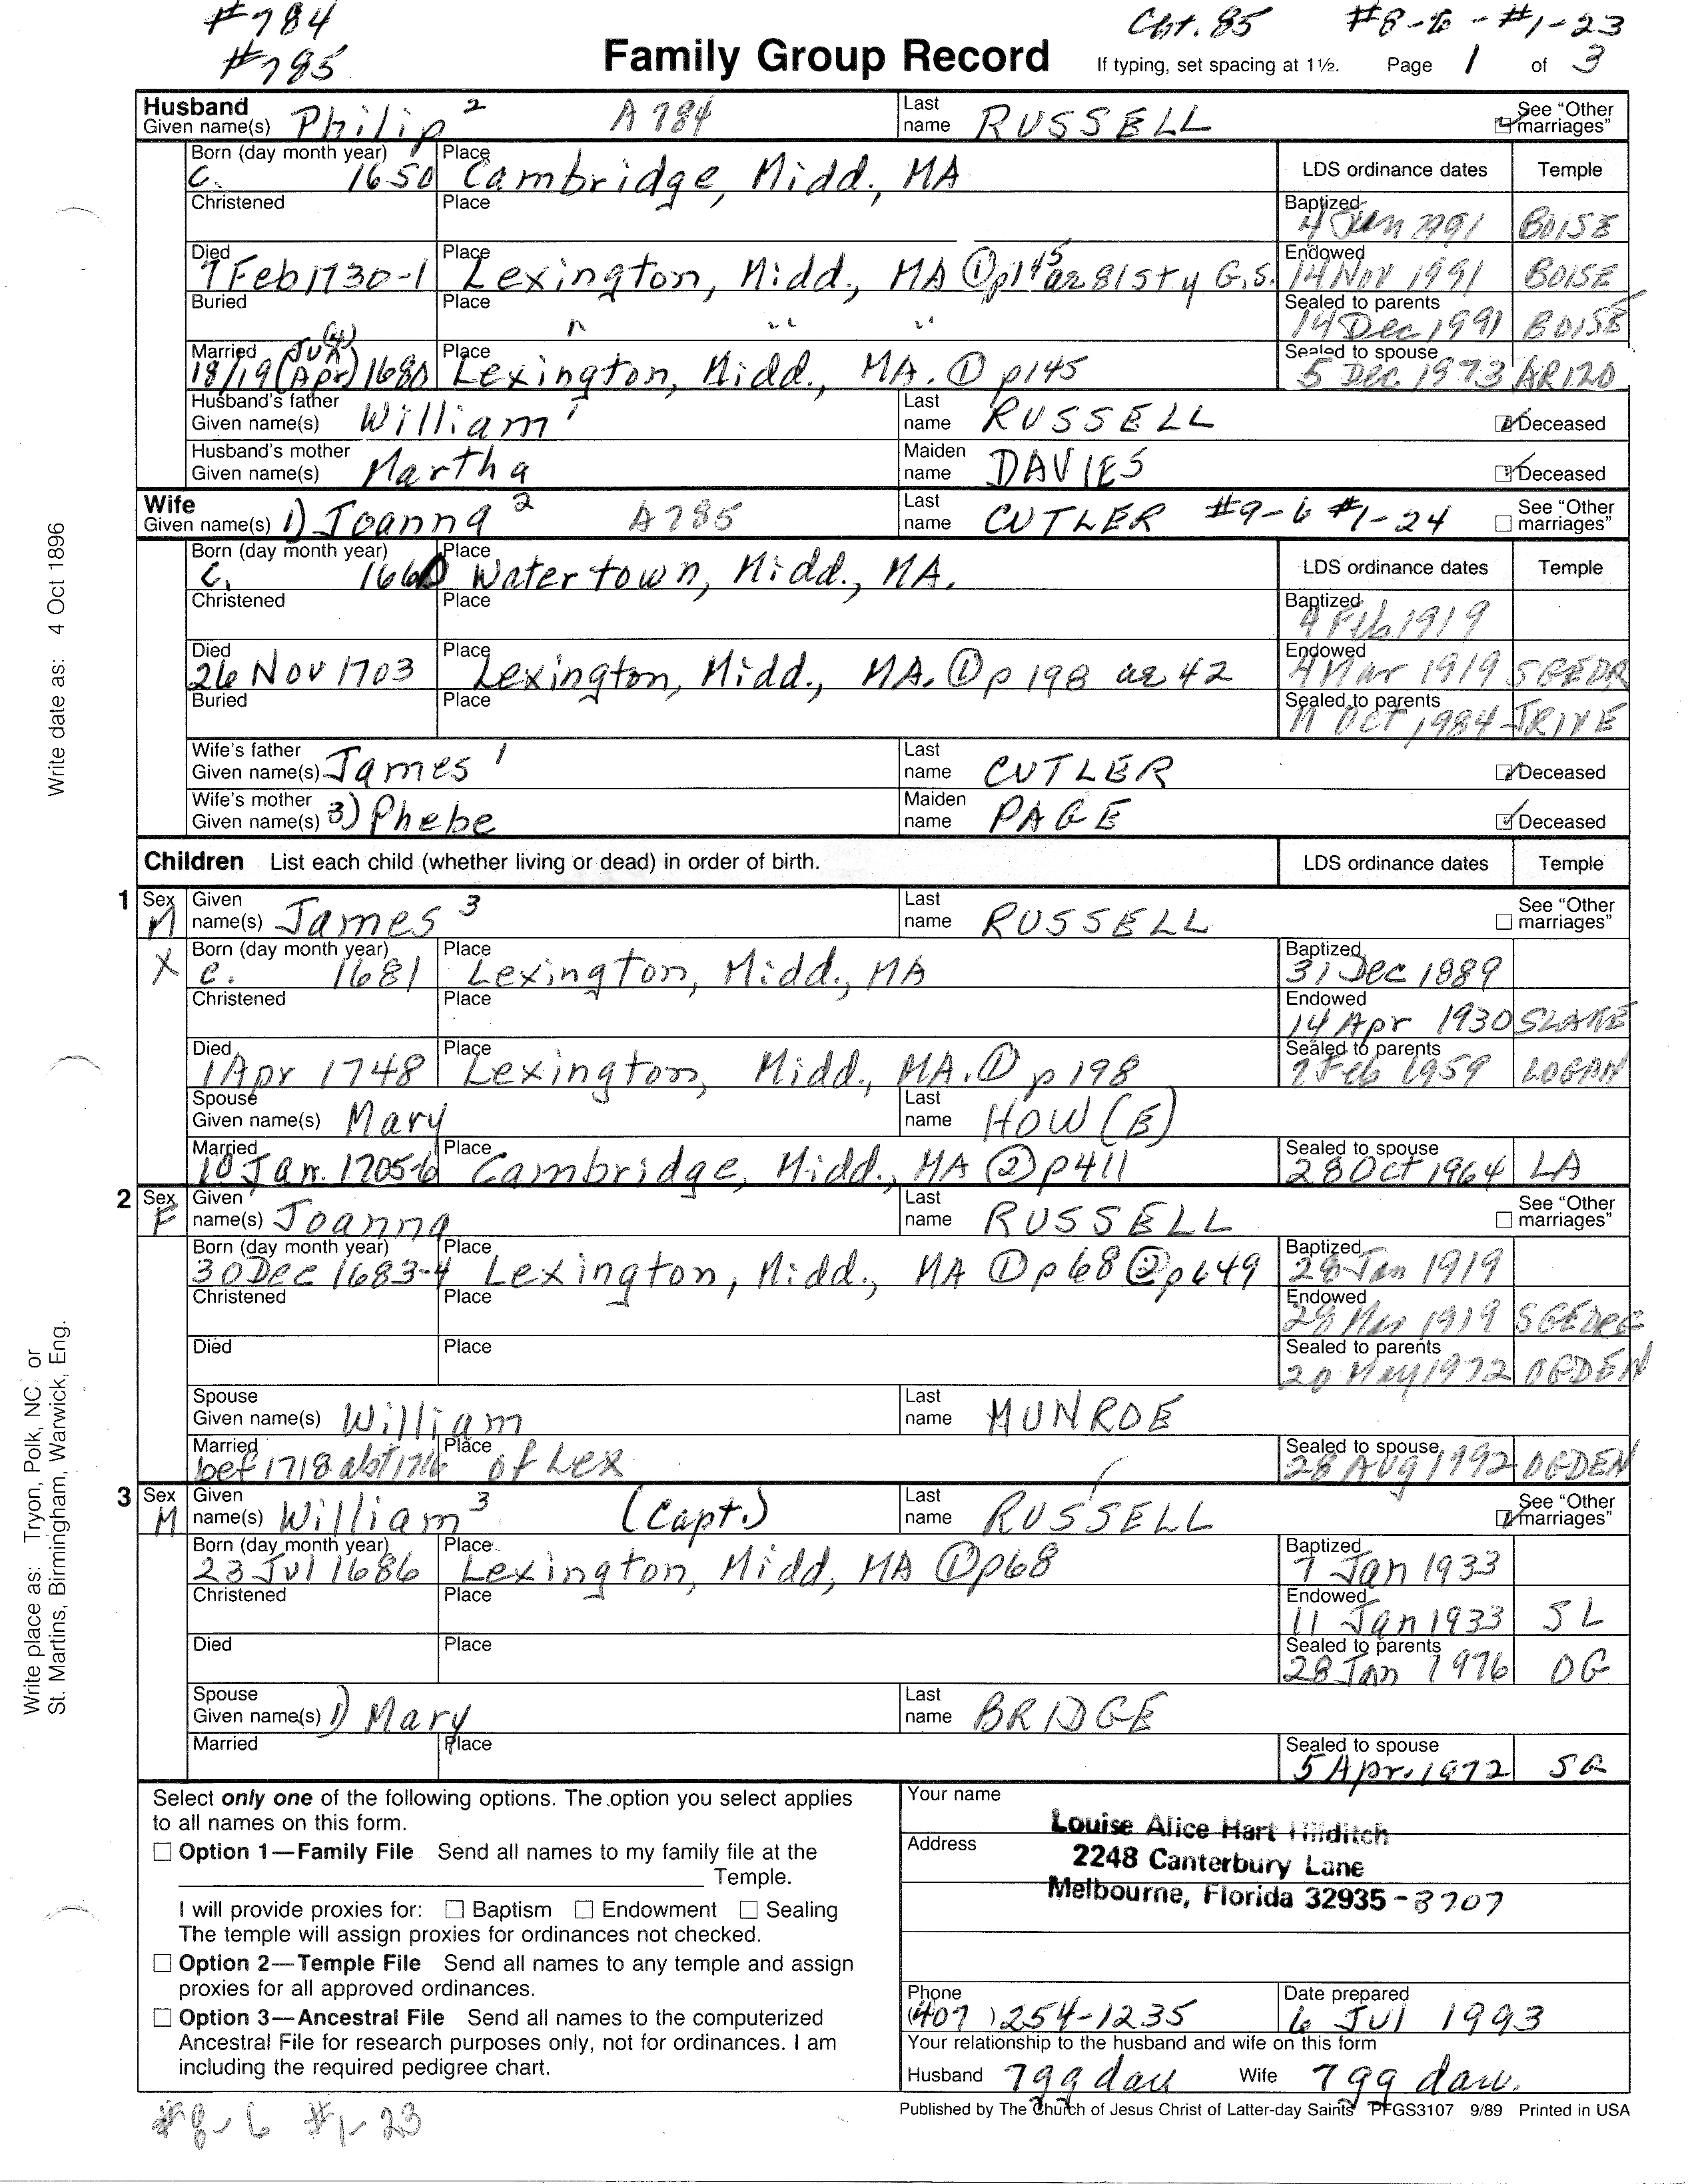 #784 Cht. 85 #8-6 - #1-23
#785 Family Group Record If typing, set spacing at 1½. Page 1 of 3
Husband
Given name(s) Philip 2 A784 Last name RUSSELL See "Other marriages"
Born (day month year) C. 1650 Place Cambridge, Midd., MA LDS ordinance dates Temple
Christened Place Baptized 4 Jun 1991 BOISE
Died 7 Feb 1730-1 Place Lexington, Midd., MA ① p145 ae 81st y G.S. Endowed 14 Nov 1991 BOISE
Buried Place " " " Sealed to parents 14 Dec 1991 BOISE
Married 18/19 (Apr) Jun (4) 1680 Place Lexington, Midd., MA. ① p145 Sealed to spouse 5 Dec. 1973 AR120
Husband's father Given name(s) William 1 Last name RUSSELL Deceased
Husband's mother Given name(s) Martha Maiden name DAVIES Deceased
Wife
Given name(s) 1) Joanna 2 A785 Last name CUTLER #9-6 #1-24 See "Other marriages"
Born (day month year) C. 1660 Place Watertown, Midd., MA. LDS ordinance dates Temple
Christened Place Baptized 4 Feb 1919
Died 26 Nov 1703 Place Lexington, Midd., MA. ① p 198 ae 42 Endowed 4 Mar 1919
Buried Place Sealed to parents 11 Oct 1984 JRIVE
Wife's father Given name(s) James 1 Last name CUTLER Deceased
Wife's mother Given name(s) 3) Phebe Maiden name PAGE Deceased
Children List each child (whether living or dead) in order of birth. LDS ordinance dates Temple
1 Sex M Given name(s) James 3 Last name RUSSELL See "Other marriages"
X Born (day month year) c. 1681 Place Lexington, Midd., MA Baptized 31 Dec 1889
Christened Place Endowed 14 Apr 1930 SLAKE
Died 1 Apr 1748 Place Lexington, Midd., MA. ① p 198 Sealed to parents 2 Feb 1959 LOGAN
Spouse Given name(s) Mary Last name HOW(E)
Married 10 Jan. 1705-6 Place Cambridge, Midd., MA ② p411 Sealed to spouse 28 Oct 1964 LA
2 Sex F Given name(s) Joanna Last name RUSSELL See "Other marriages"
Born (day month year) 30 Dec 1683-4 Place Lexington, Midd., MA ① p 68 ② p 649 Baptized 28 Jan 1919
Christened Place Endowed 28 Mar 1919
Died Place Sealed to parents 20 May 1972 OGDEN
Spouse Given name(s) William Last name MUNROE
Married bef 1718 abt 1716 Place of Lex Sealed to spouse 28 Aug 1992 OGDEN
3 Sex M Given name(s) William 3 (Capt.) Last name RUSSELL See "Other marriages"
Born (day month year) 23 Jul 1686 Place Lexington, Midd, MA ① p68 Baptized 7 Jan 1933
Christened Place Endowed 11 Jan 1933 SL
Died Place Sealed to parents 28 Jan 1976 OG
Spouse Given name(s) 1) Mary Last name BRIDGE
Married Place Sealed to spouse 5 Apr. 1972 SG
Select only one of the following options. The option you select applies
to all names on this form.
Option 1—Family File Send all names to my family file at the
Temple.
I will provide proxies for: Baptism Endowment Sealing
The temple will assign proxies for ordinances not checked.
Option 2—Temple File Send all names to any temple and assign
proxies for all approved ordinances.
Option 3—Ancestral File Send all names to the computerized
Ancestral File for research purposes only, not for ordinances. I am
including the required pedigree chart.
Your name Louise Alice Hart Hilditch
Address 2248 Canterbury Lane
Melbourne, Florida 32935 - 3707
Phone (407) 254-1235 Date prepared 6 Jul 1993
Your relationship to the husband and wife on this form
Husband 7gg dau Wife 7gg dau.
Published by The Church of Jesus Christ of Latter-day Saints PFGS3107 9/89 Printed in USA
#8-6 #1-23
Write date as: 4 Oct 1896
Write place as: Tryon, Polk, NC or
St. Martins, Birmingham, Warwick, Eng.